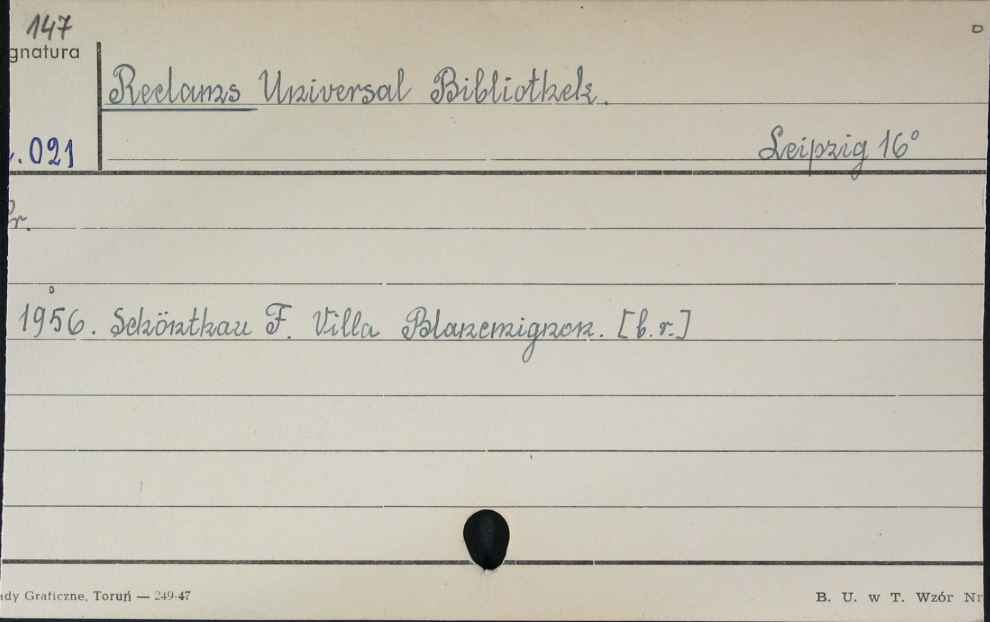 147
gnatura
Reclams Universal Bibliothek.
.021
Leipzig 16°
r.
1956. Schönthau F. Villa Blancmignon. [b.r.]
ady Graficzne, Toruń — 249-47
B. U. w T. Wzór Nr